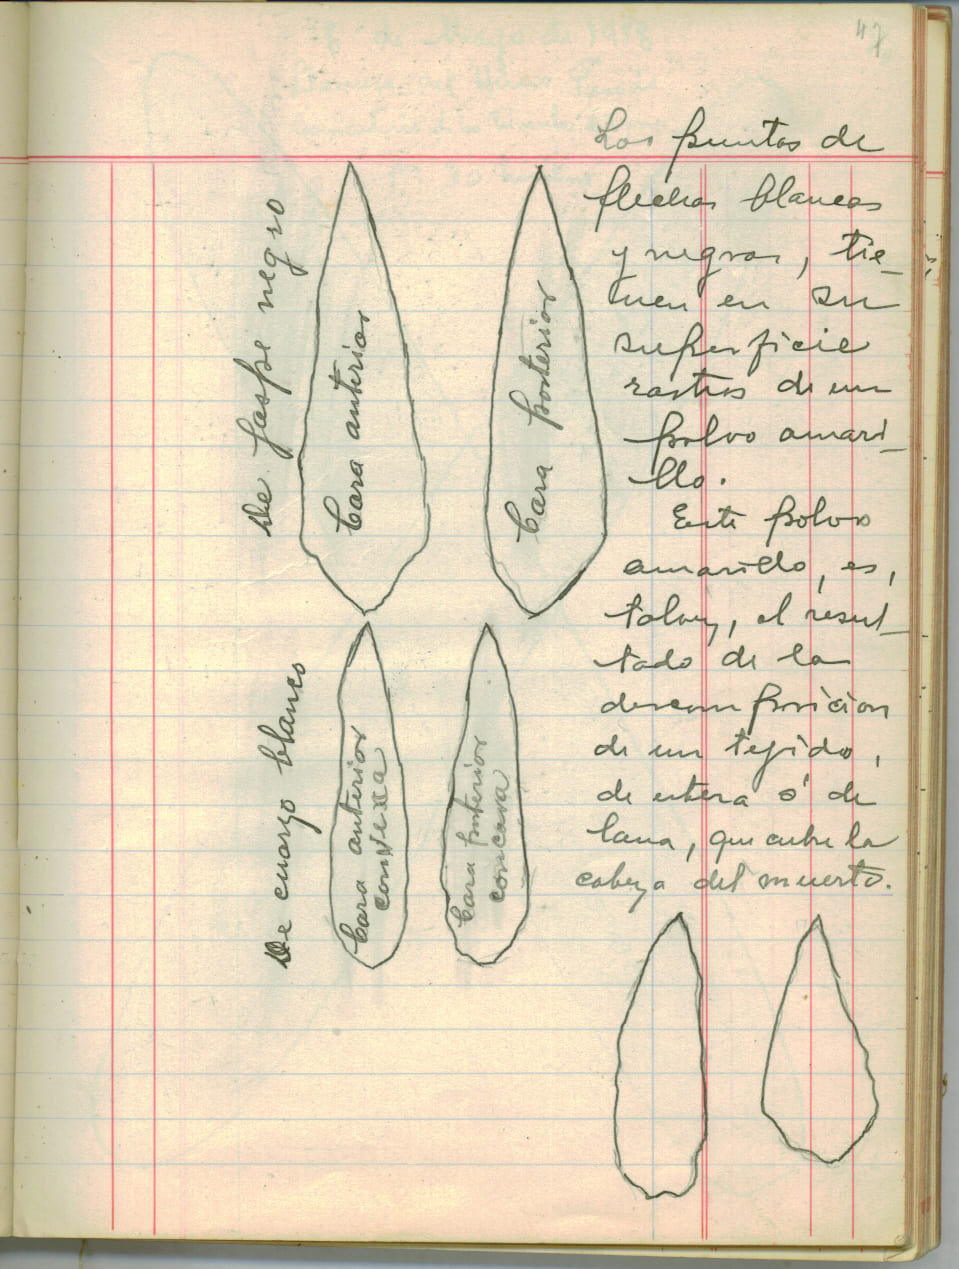 47
Las puntas de
flechas blancas
y negras, tie-
nen en su
superficie
rastros de un
polvo amari-
llo.
Este polvo
amarillo, es,
talvez, el resul-
tado de la
descomposicion
de un tejido,
de estera ó de
lana, que cubre la
cabeza del muerto.
De jaspe negro
Cara anterior
Cara posterior
De cuarzo blanco
Cara anterior
convexa
Cara posterior
concava